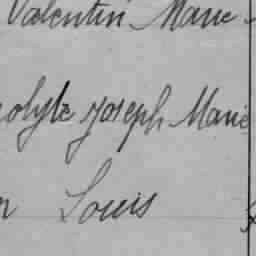 Valentin Marie
olyte Joseph Marie
Louis